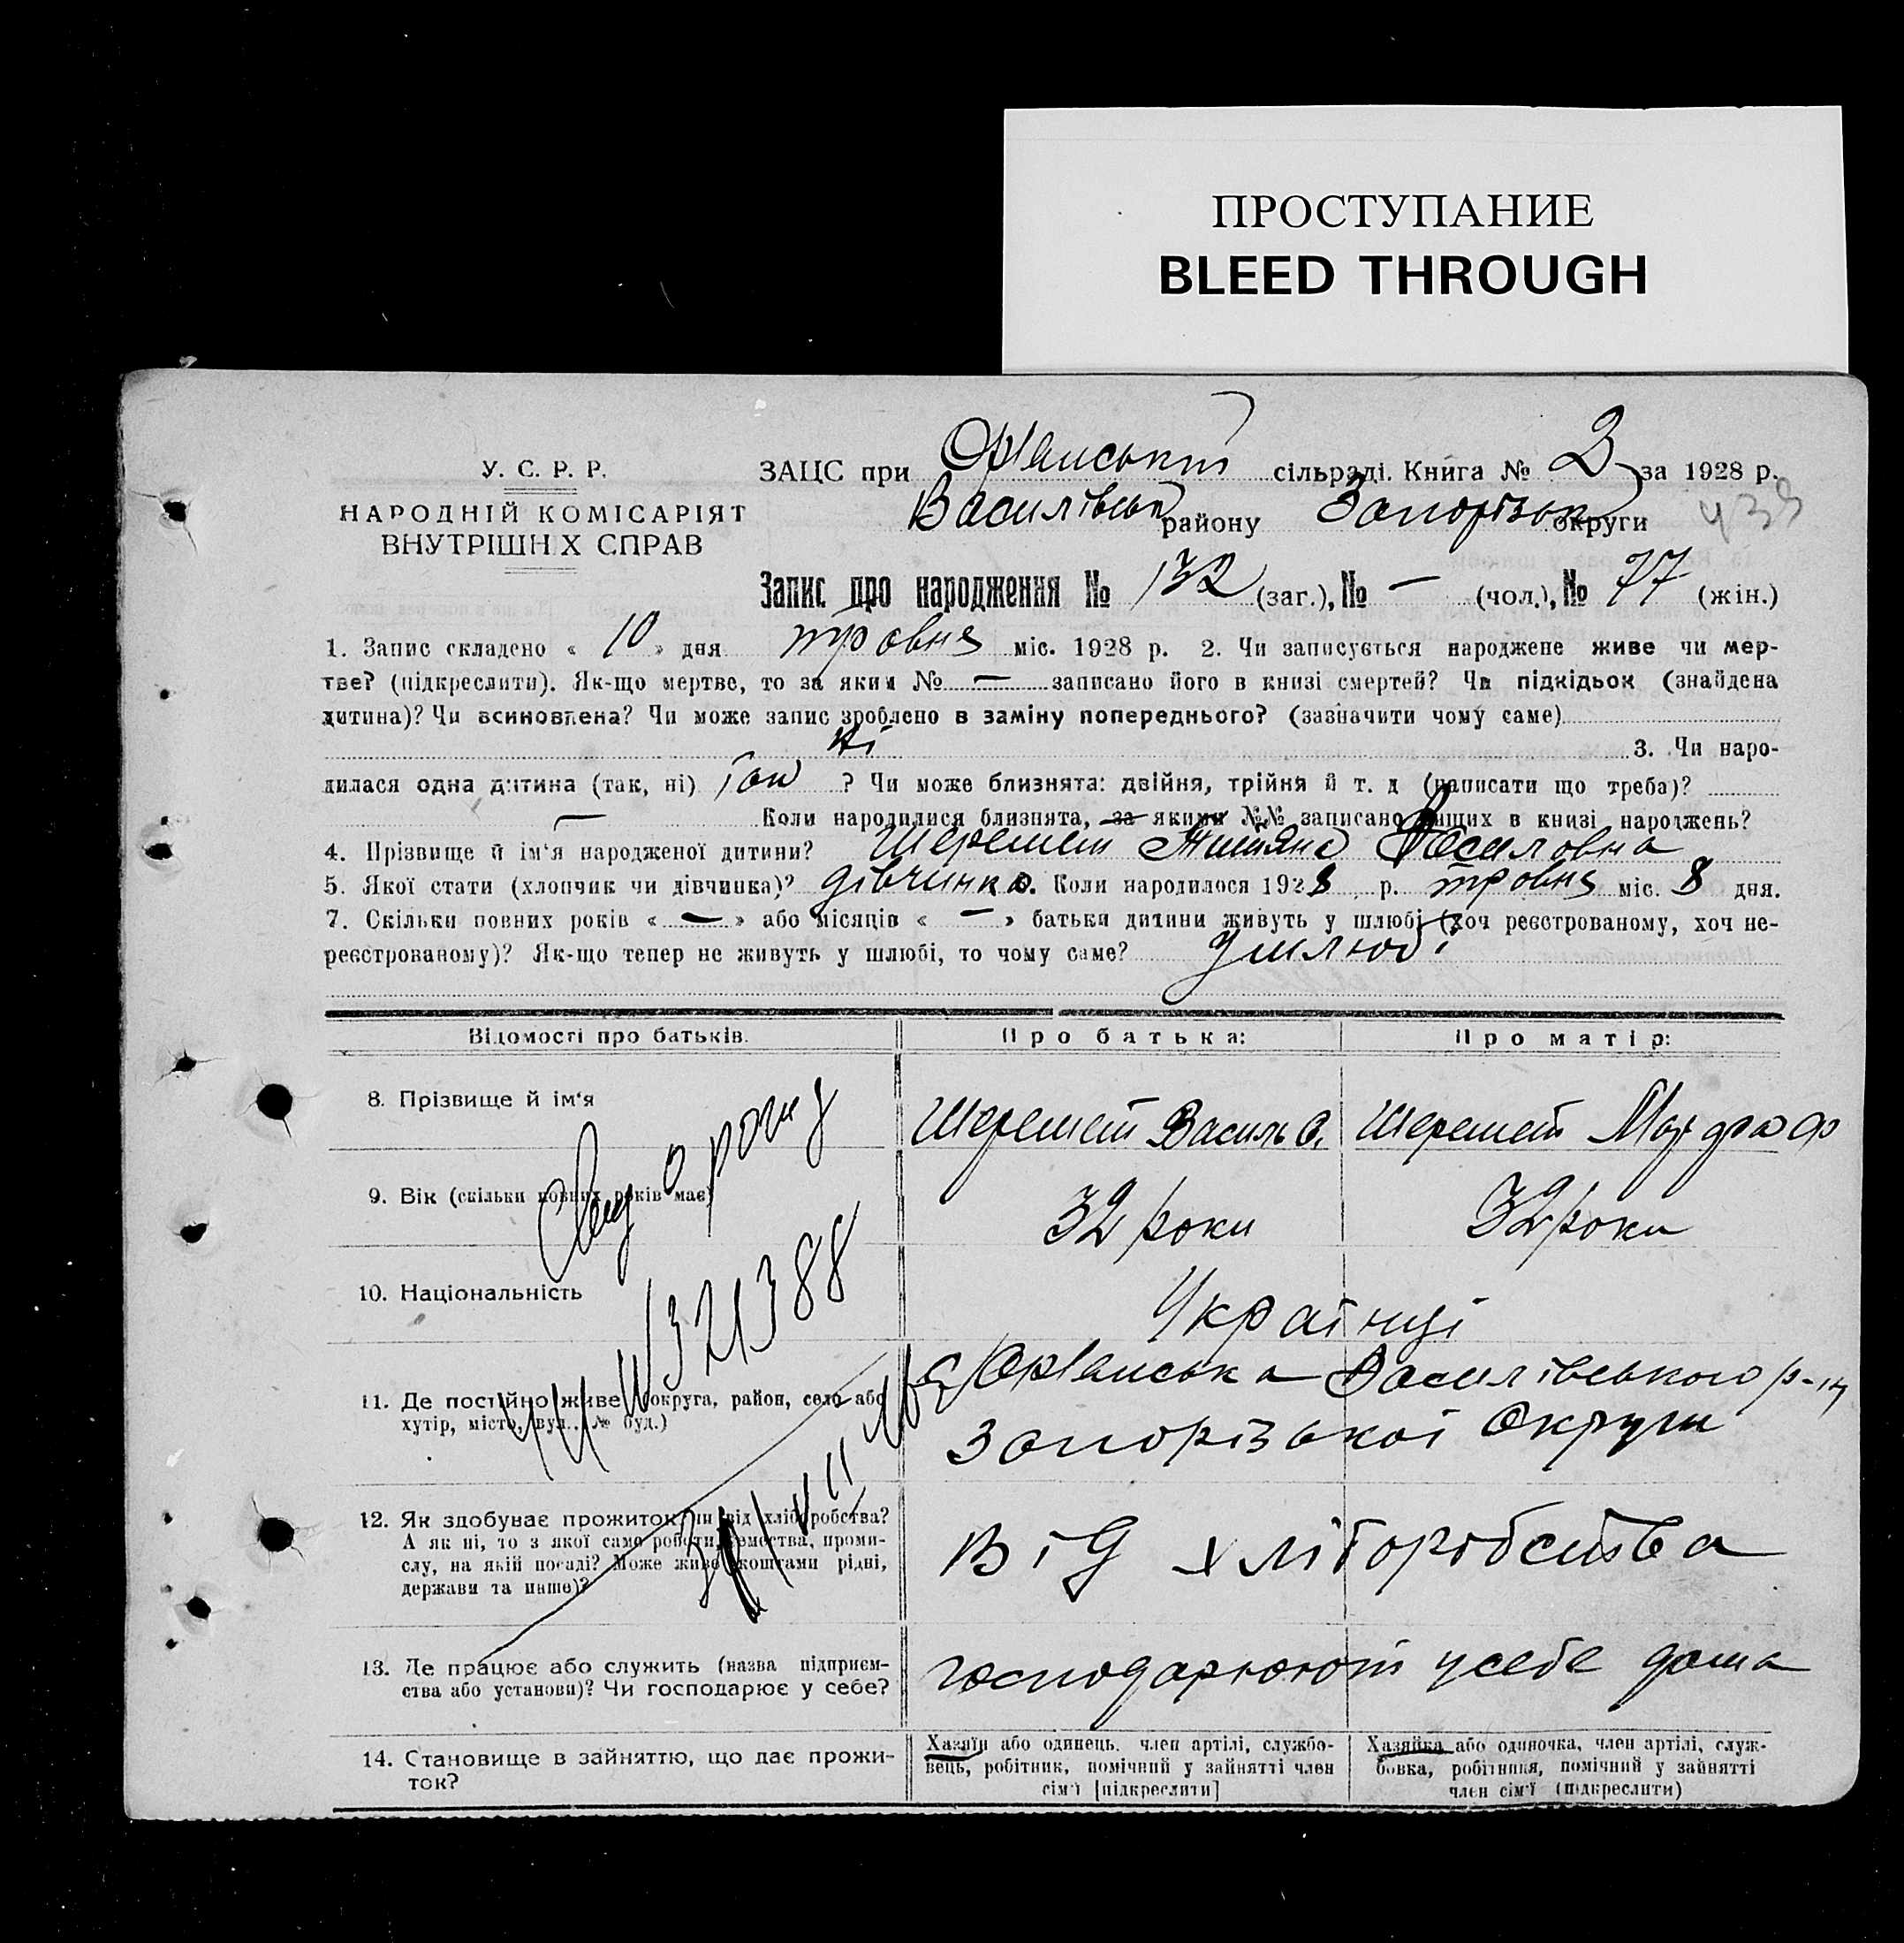 ПРОСТУПАНИЕ
BLEED THROUGH
У. С. Р. Р.
НАРОДНІЙ КОМІСАРІЯТ
ВНУТРІШНІХ СПРАВ
ЗАЦС при Орянський сільраді. Книга № 2 за 1928 р.
Василівськ району Запорізьк округи 439
Запис про народження № 132 (заг.), № — (чол.), № 77 (жін.)
1. Запис складено « 10 » дня травня міс. 1928 р. 2. Чи записується народжене живе чи мер-
тве? (підкреслити). Як-що мертве, то за яким № — записано його в книзі смертей? Чи підкідьок (знайдена
дитина)? Чи всиновлена? Чи може запис зроблено в заміну попереднього? (зазначити чому саме)
Ні 3. Чи наро-
дилася одна дитина (так, ні) так ? Чи може близнята: двійня, трійня й т. д (написати що треба)?
— Коли народилися близнята, за якими №№ записано инших в книзі народжень?
4. Прізвище й ім‘я народженої дитини? Шеремет Титяна Василовна
5. Якої стати (хлопчик чи дівчинка)? дівчинка. Коли народилося 1928 р. травня міс. 8 дня.
7. Скільки повних років « — » або місяців « — » батьки дитини живуть у шлюбі (хоч реєстрованому, хоч не-
реєстрованому)? Як-що тепер не живуть у шлюбі, то чому саме? У шлюбі
Відомості про батьків.
Про батька:
Про матір:
8. Прізвище й ім‘я
Шеремет Василь
Шеремет
9. Вік (скільки повних років має)
32 роки
32 роки
10. Національність
Українці
11. Де постійно живе (округа, район, село або
хутір, місто, вул., № буд.)
Василівського р-ну
Запорізької Округи
12. Як здобуває прожиток? чи від хліборобства?
А як ні, то з якої саме роботи, ремества, проми-
слу, на якій посаді? Може живе коштами рідні,
держави та инше)?
Від хліборобства
13. Де працює або служить (назва підприєм-
ства або установи)? Чи господарює у себе?
господарюют у себе дома
14. Становище в зайняттю, що дає прожи-
ток?
Хазяїн або одинець, член артілі, службо-
вець, робітник, помічний у зайнятті член
сім‘ї [підкреслити]
Хазяйка або одиночка, член артілі, служ-
бовка, робітниця, помічний у зайнятті
член сім‘ї (підкреслити)
321388